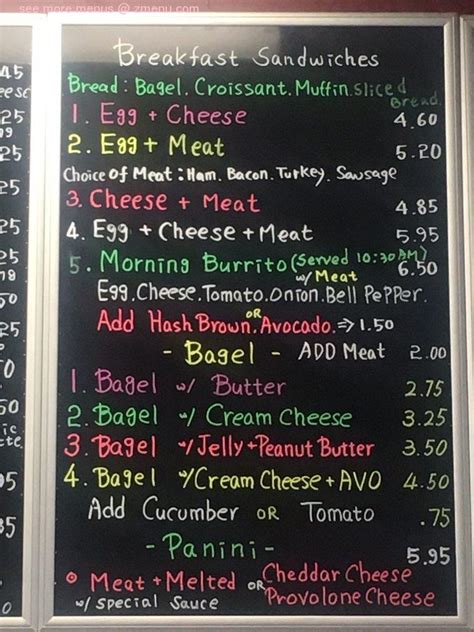 see more menus @ zmenu.com
Breakfast Sandwiches
Bread: Bagel. Croissant. Muffin. Sliced Bread
1. Egg + Cheese 4.60
2. Egg + Meat 5.20
Choice of Meat: Ham. Bacon. Turkey. Sausage
3. Cheese + Meat 4.85
4. Egg + Cheese + Meat 5.95
5. Morning Burrito (Served 10:30AM) 6.50
w/ Meat
Egg. Cheese. Tomato. Onion. Bell Pepper.
Add Hash Brown. OR Avocado. => 1.50
- Bagel - ADD Meat 2.00
1. Bagel w/ Butter 2.75
2. Bagel w/ Cream Cheese 3.25
3. Bagel w/ Jelly + Peanut Butter 3.50
4. Bagel w/ Cream Cheese + AVO 4.50
Add Cucumber OR Tomato .75
- Panini - 5.95
Meat + Melted OR Cheddar Cheese
w/ special Sauce Provolone Cheese